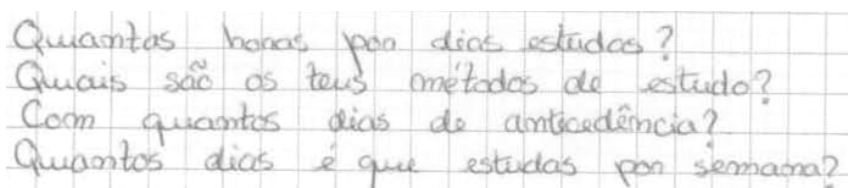 Quantas horas por dias estudas?
Quais são os teus métodos de estudo?
Com quantos dias de antecedência?
Quantos dias é que estudas por semana?